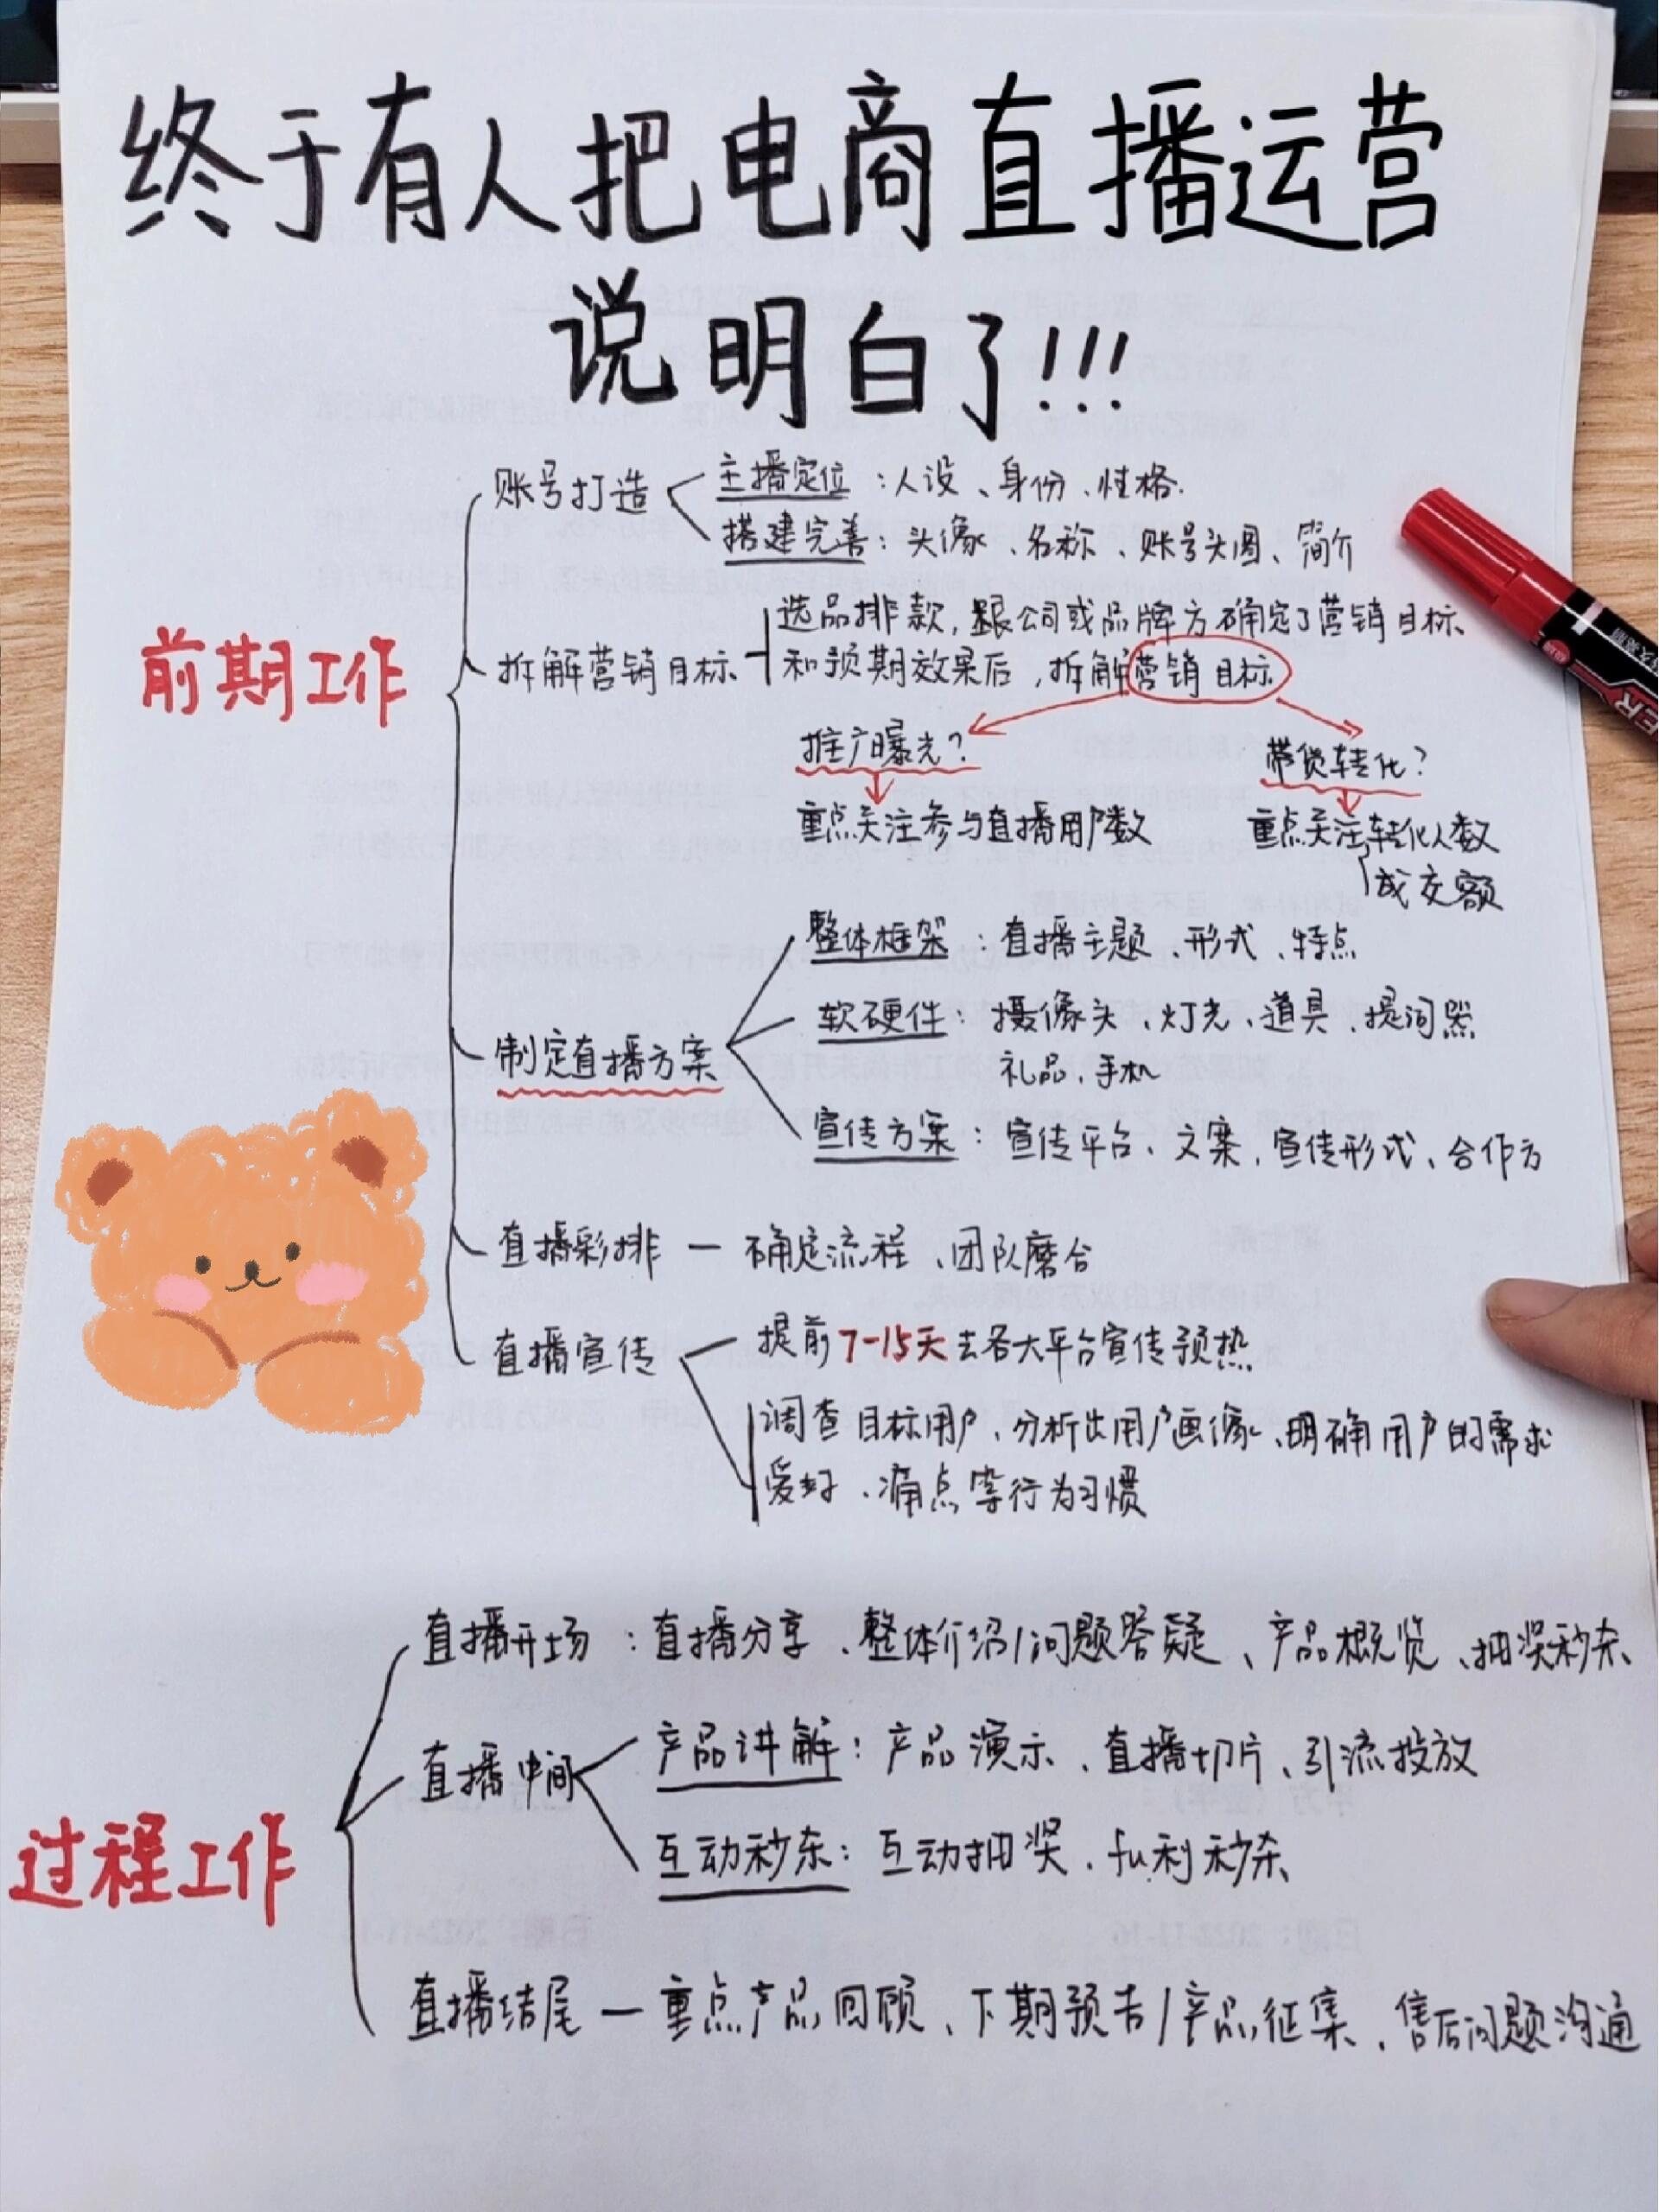 终于有人把电商直播运营
说明白了!!!
前期工作
账号打造
主播定位：人设、身份、性格.
搭建完善：头像、名称、账号头图、简介
拆解营销目标
选品排款，跟公司或品牌方确定了营销目标
和预期效果后，拆解营销目标
推广曝光？
带货转化？
重点关注参与直播用户数
重点关注转化人数
成交额
制定直播方案
整体框架：直播主题、形式、特点
软硬件：摄像头、灯光、道具、提词器
礼品、手机
宣传方案：宣传平台、文案、宣传形式、合作方
直播彩排 — 确定流程、团队磨合
直播宣传
提前7-15天去各大平台宣传预热
调查目标用户、分析出用户画像、明确用户的需求
爱好、痛点等行为习惯
过程工作
直播开场：直播分享、整体介绍/问题答疑、产品概览、抽奖秒杀
直播中间
产品讲解：产品演示、直播切片、引流投放
互动秒杀：互动抽奖、fu利秒杀
直播结尾 — 重点产品回顾、下期预告/产品征集、售后问题沟通